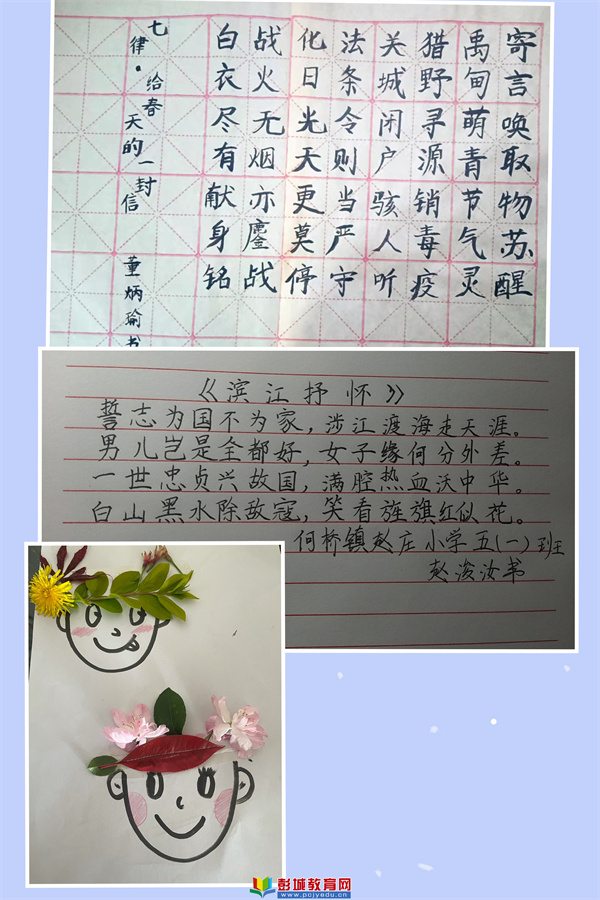 寄言唤取物苏醒
禹甸萌青节气灵
猎野寻源销毒疫
关城闭户骇人听
法条令则当严守
化日光天更莫停
战火无烟亦鏖战
白衣尽有献身铭
七律·给春天的一封信 董炳瑜书
《滨江抒怀》
誓志为国不为家，涉江渡海走天涯。
男儿岂是全都好，女子缘何分外差。
一世忠贞兴故国，满腔热血沃中华。
白山黑水除敌寇，笑看旌旗红似花。
何桥镇赵庄小学五(一)班
赵浚汝书
彭城教育网
www.pcjyedu.cn